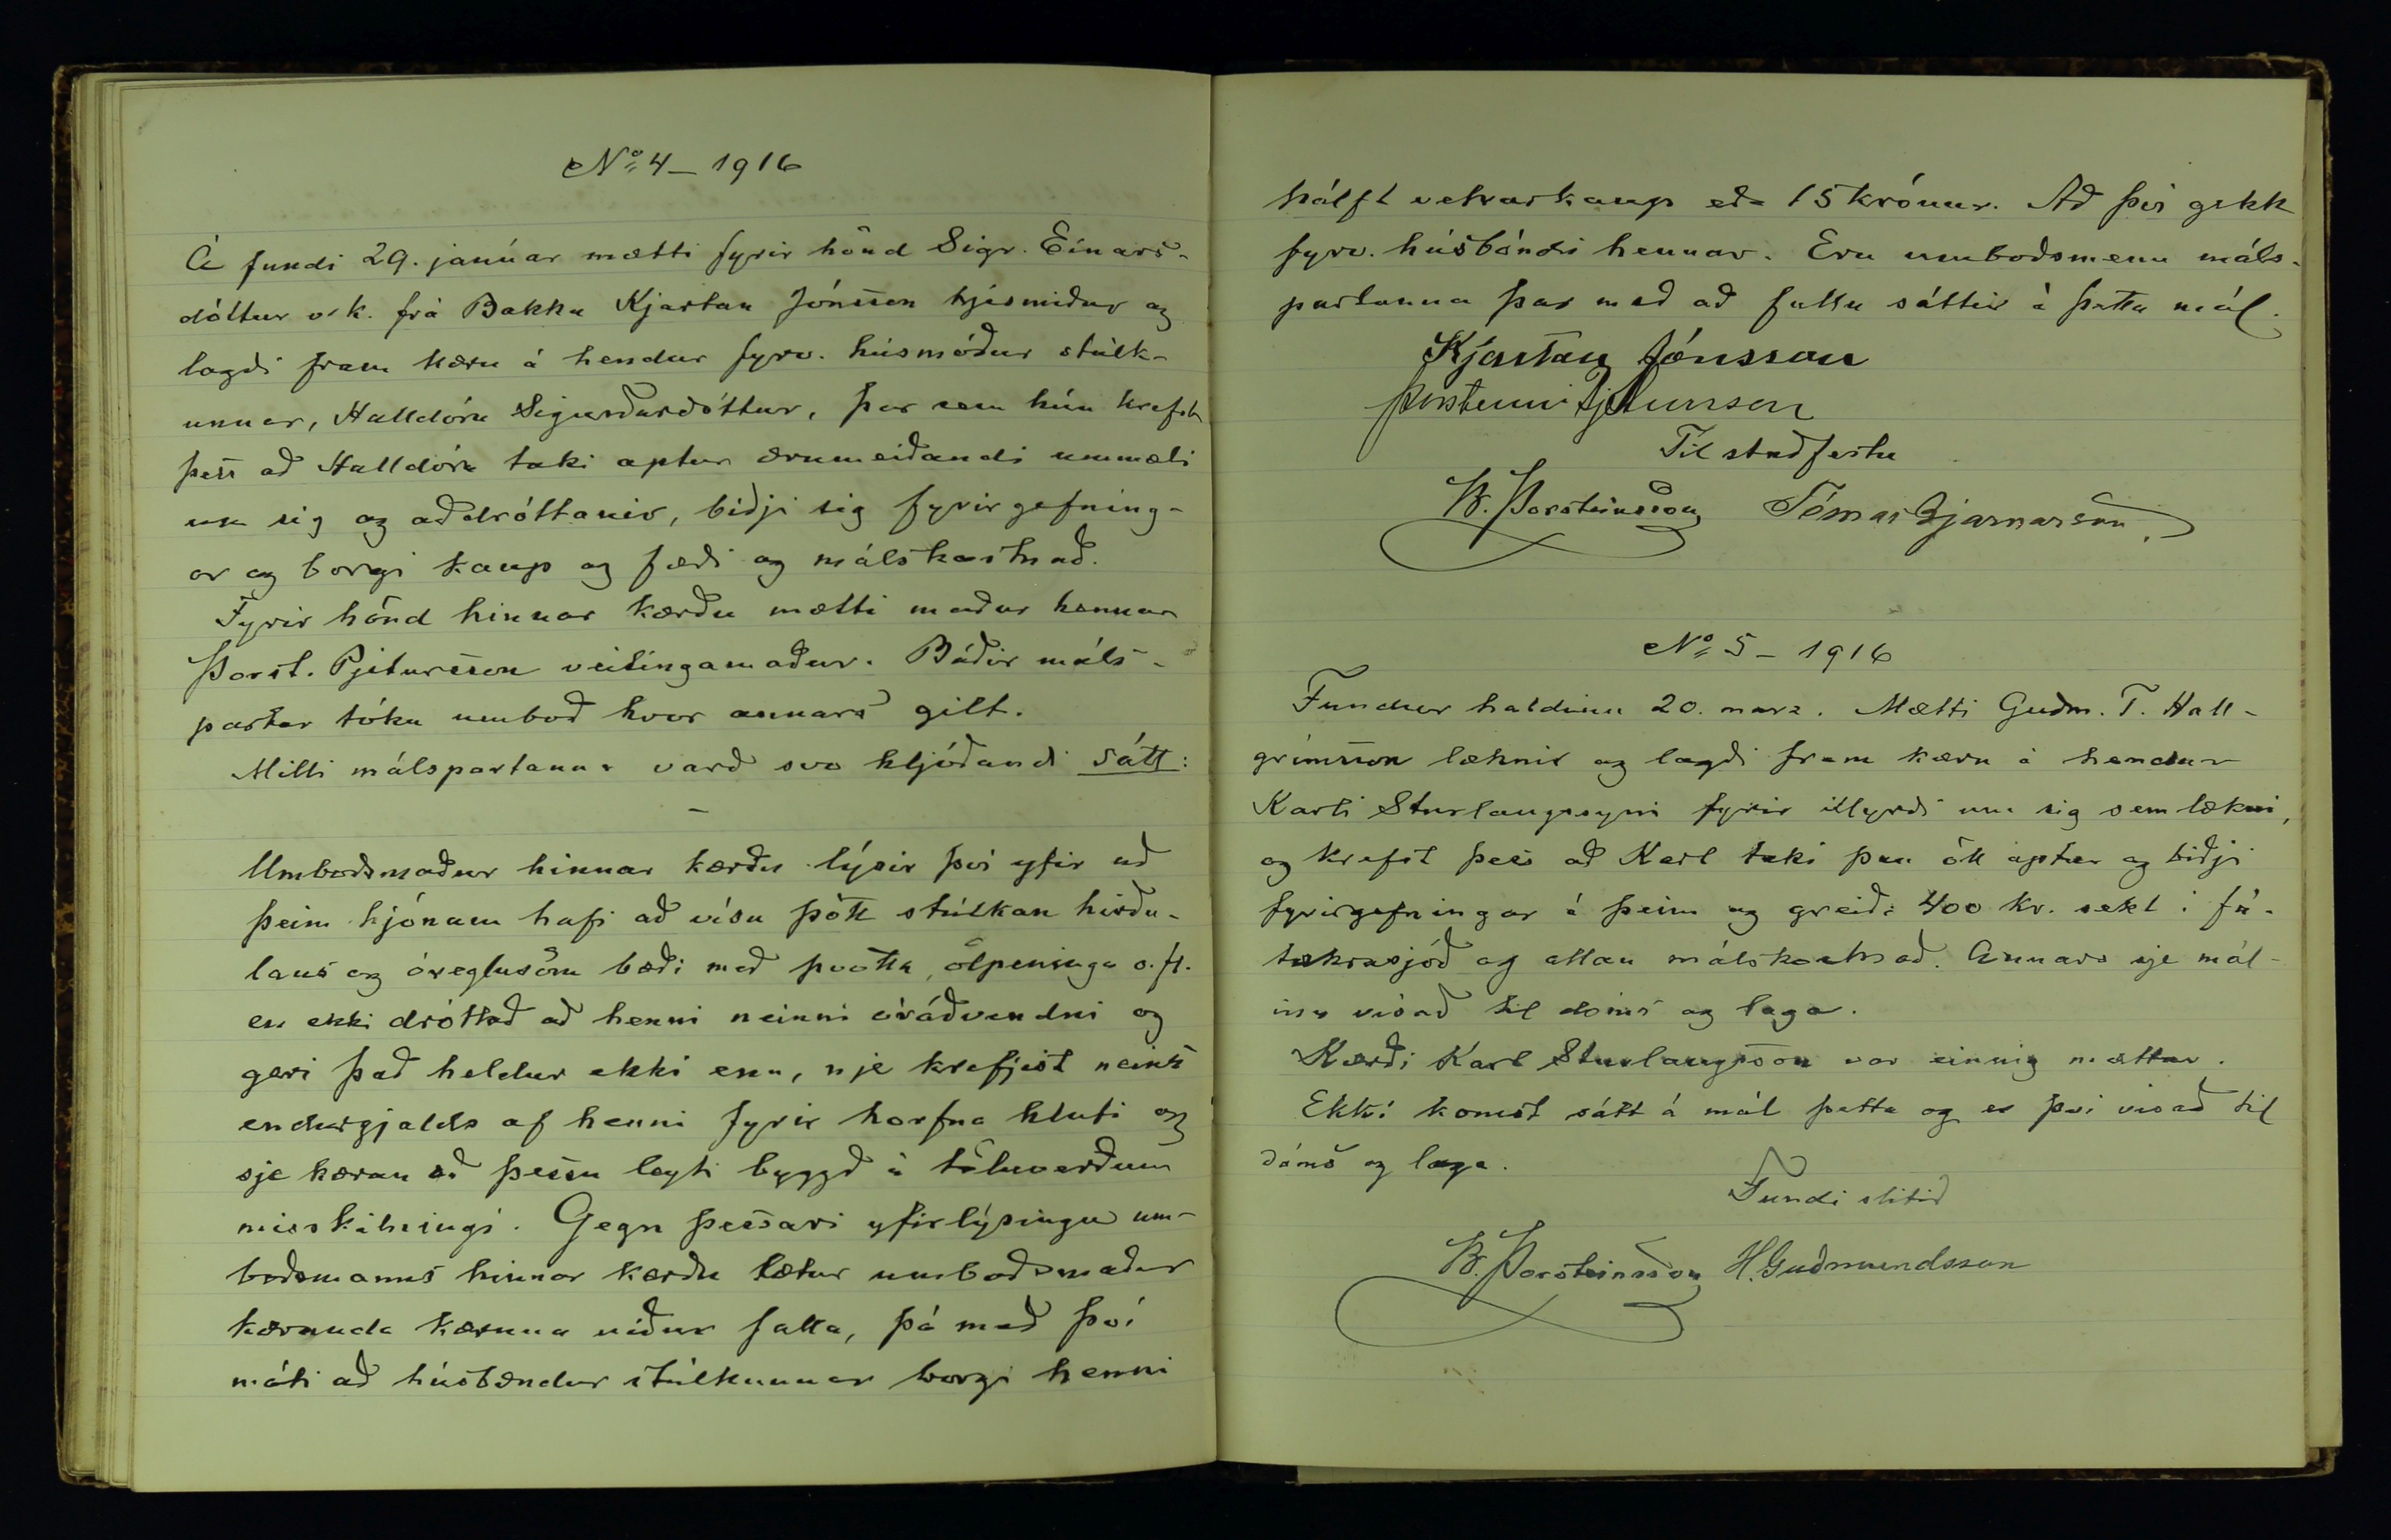 No 4 – 1916
Á fundi 29. janúar mætti fyrir hönd Sigr. Einars-
dóttur v.k. frá Bakka Kjartan Jónsson trjesmiður og
lagði fram kæru á hendur fyrv. húsmóður stúlk-
unnar, Halldóru Sigurðardóttur, þar sem hún krefst
þess að Halldóra taki aptur ærumeiðandi ummæli
um sig og aðdróttanir, biðji sig fyrirgefning-
ar og borgi kaup og fæði og málskostnað.
Fyrir hönd hinnar kærðu mætti maður hennar
Þorst. Pjetursson veitingamaður. Báðir máls-
partar tóku umboð hvor annars gilt.
Milli málspartanna varð svo hljóðandi sátt:
–
Umboðsmaður hinnar kærðu lýsir því yfir að
þeim hjónum hafi að vísu þótt stúlkan hirðu-
laus og óreglusöm bæði með þvotta, ölpeninga o.fl.
en ekki dróttað að henni neinni óráðvendni og
geri það heldur ekki enn, nje krefjist neins
endurgjalds af henni fyrir horfna hluti og
sje kæran að þessu leyti byggð á töluverðum
misskilningi. Gegn þessari yfirlýsingu um-
boðsmanns hinnar kærðu lætur umboðsmaður
kæranda kæruna niður falla, þó með því
móti að húsbændur stúlkunnar borgi henni
hálft vetrarkaup eða 15 krónur. Að því gekk
fyrv. húsbóndi hennar. Eru umboðsmenn máls-
partanna þar með að fullu sáttir á þetta mál.
Kjartan Jónsson
Þorsteinn Pjetursson
Til staðfestu
B. Þorsteinsson Tómas Bjarnarson.
No 5 – 1916
Fundur haldinn 20. marz. Mætti Guðm. T. Hall-
grímsson læknir og lagði fram kæru á hendur
Karli Sturlaugssyni fyrir illyrði um sig sem lækni,
og krefst þess að Karl taki þau öll aptur og biðji
fyrirgefningar á þeim og greiði 400 kr. sekt í fá-
tækrasjóð og allan málskostnað. Annars sje mál-
inu vísað til dóms og laga.
Kærði Karl Sturlaugsson var einnig mættur.
Ekki komst sátt á mál þetta og er því vísað til
dóms og laga.
Fundi slitið
B. Þorsteinsson H. Guðmundsson